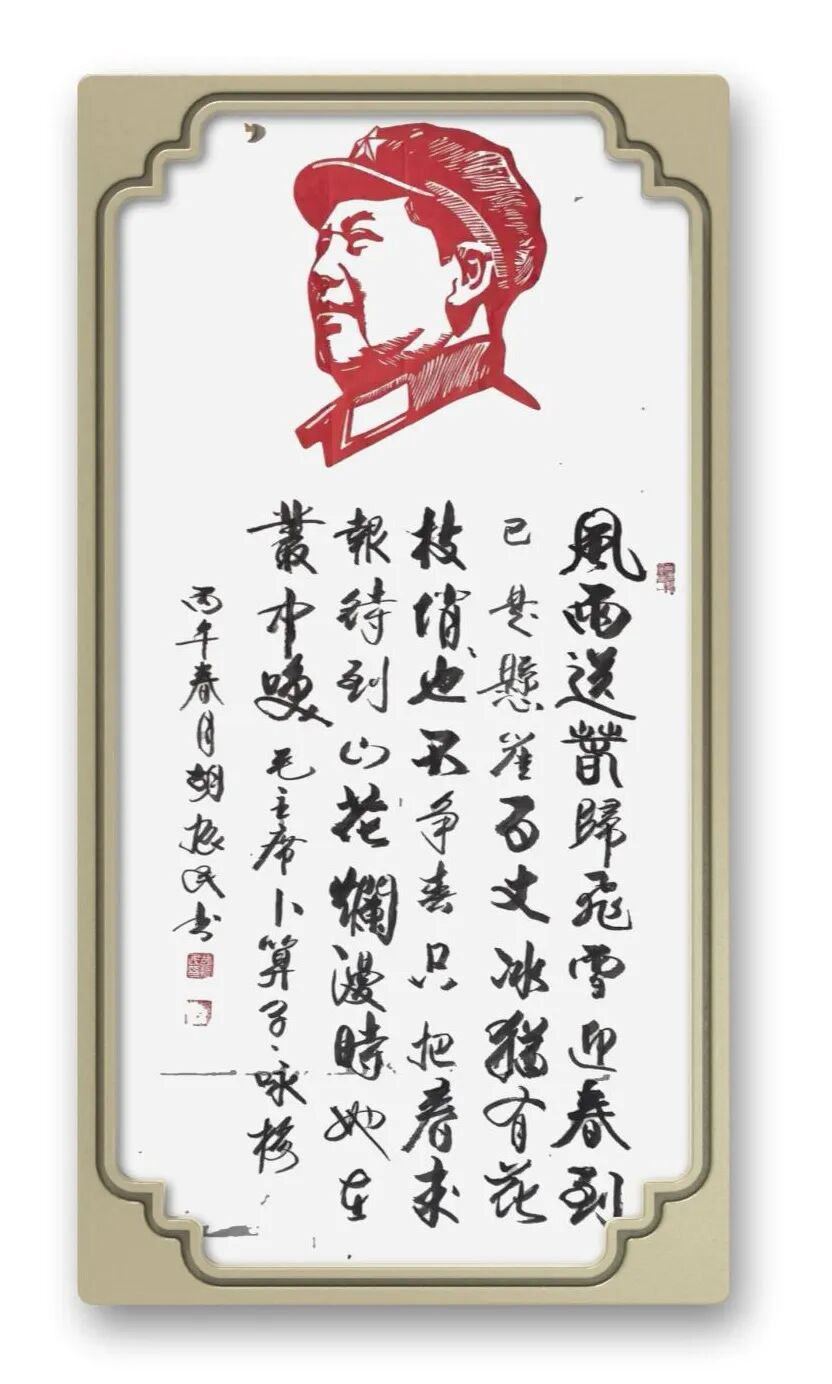 風雨送萅歸飛雪迎春到
已是懸崖百丈冰猶有花
枝俏也不争春只把春来
報待到山花爛漫時她在
叢中咲 毛主席卜算子、咏梅
丙午春月胡振民书